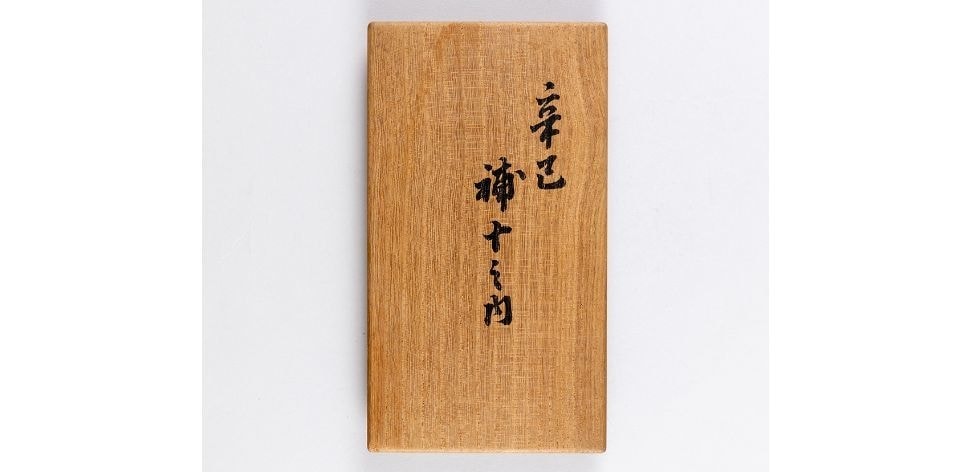 辛巳
補十之内